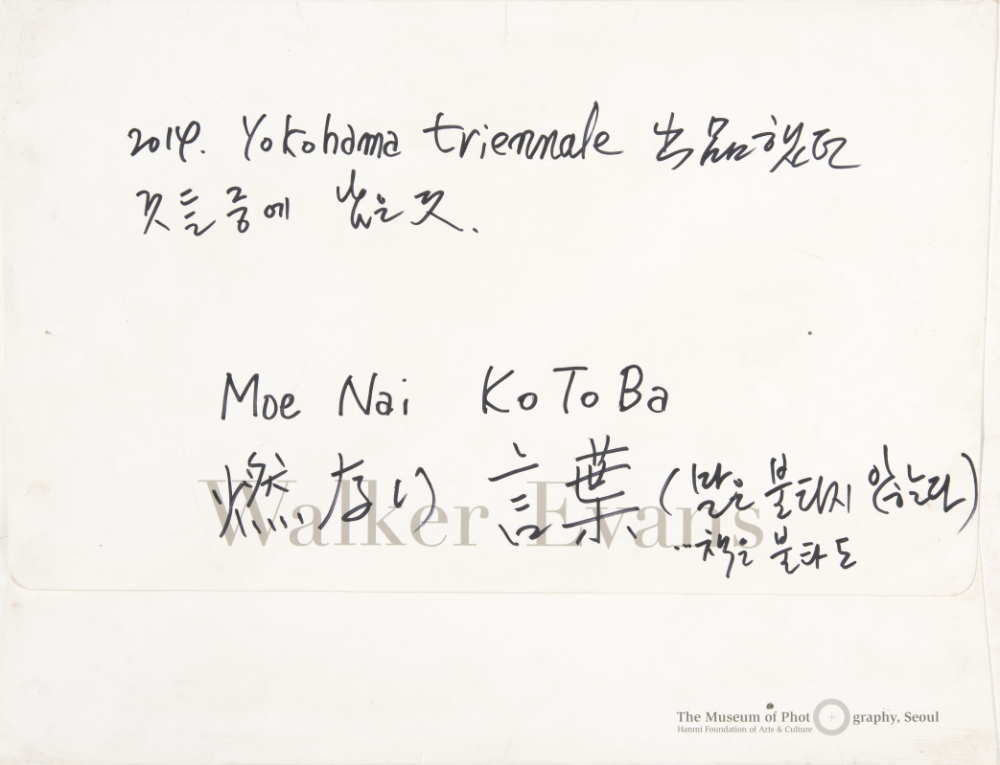 2014. Yokohama triennale 出品했던
것들 중에 남은 것.
Moe Nai KoToBa
燃ない 言葉 (말은 불타지 않는다)
...책은 불타도
Walker Evans
The Museum of Photography, Seoul
Hanmi Foundation of Arts & Culture